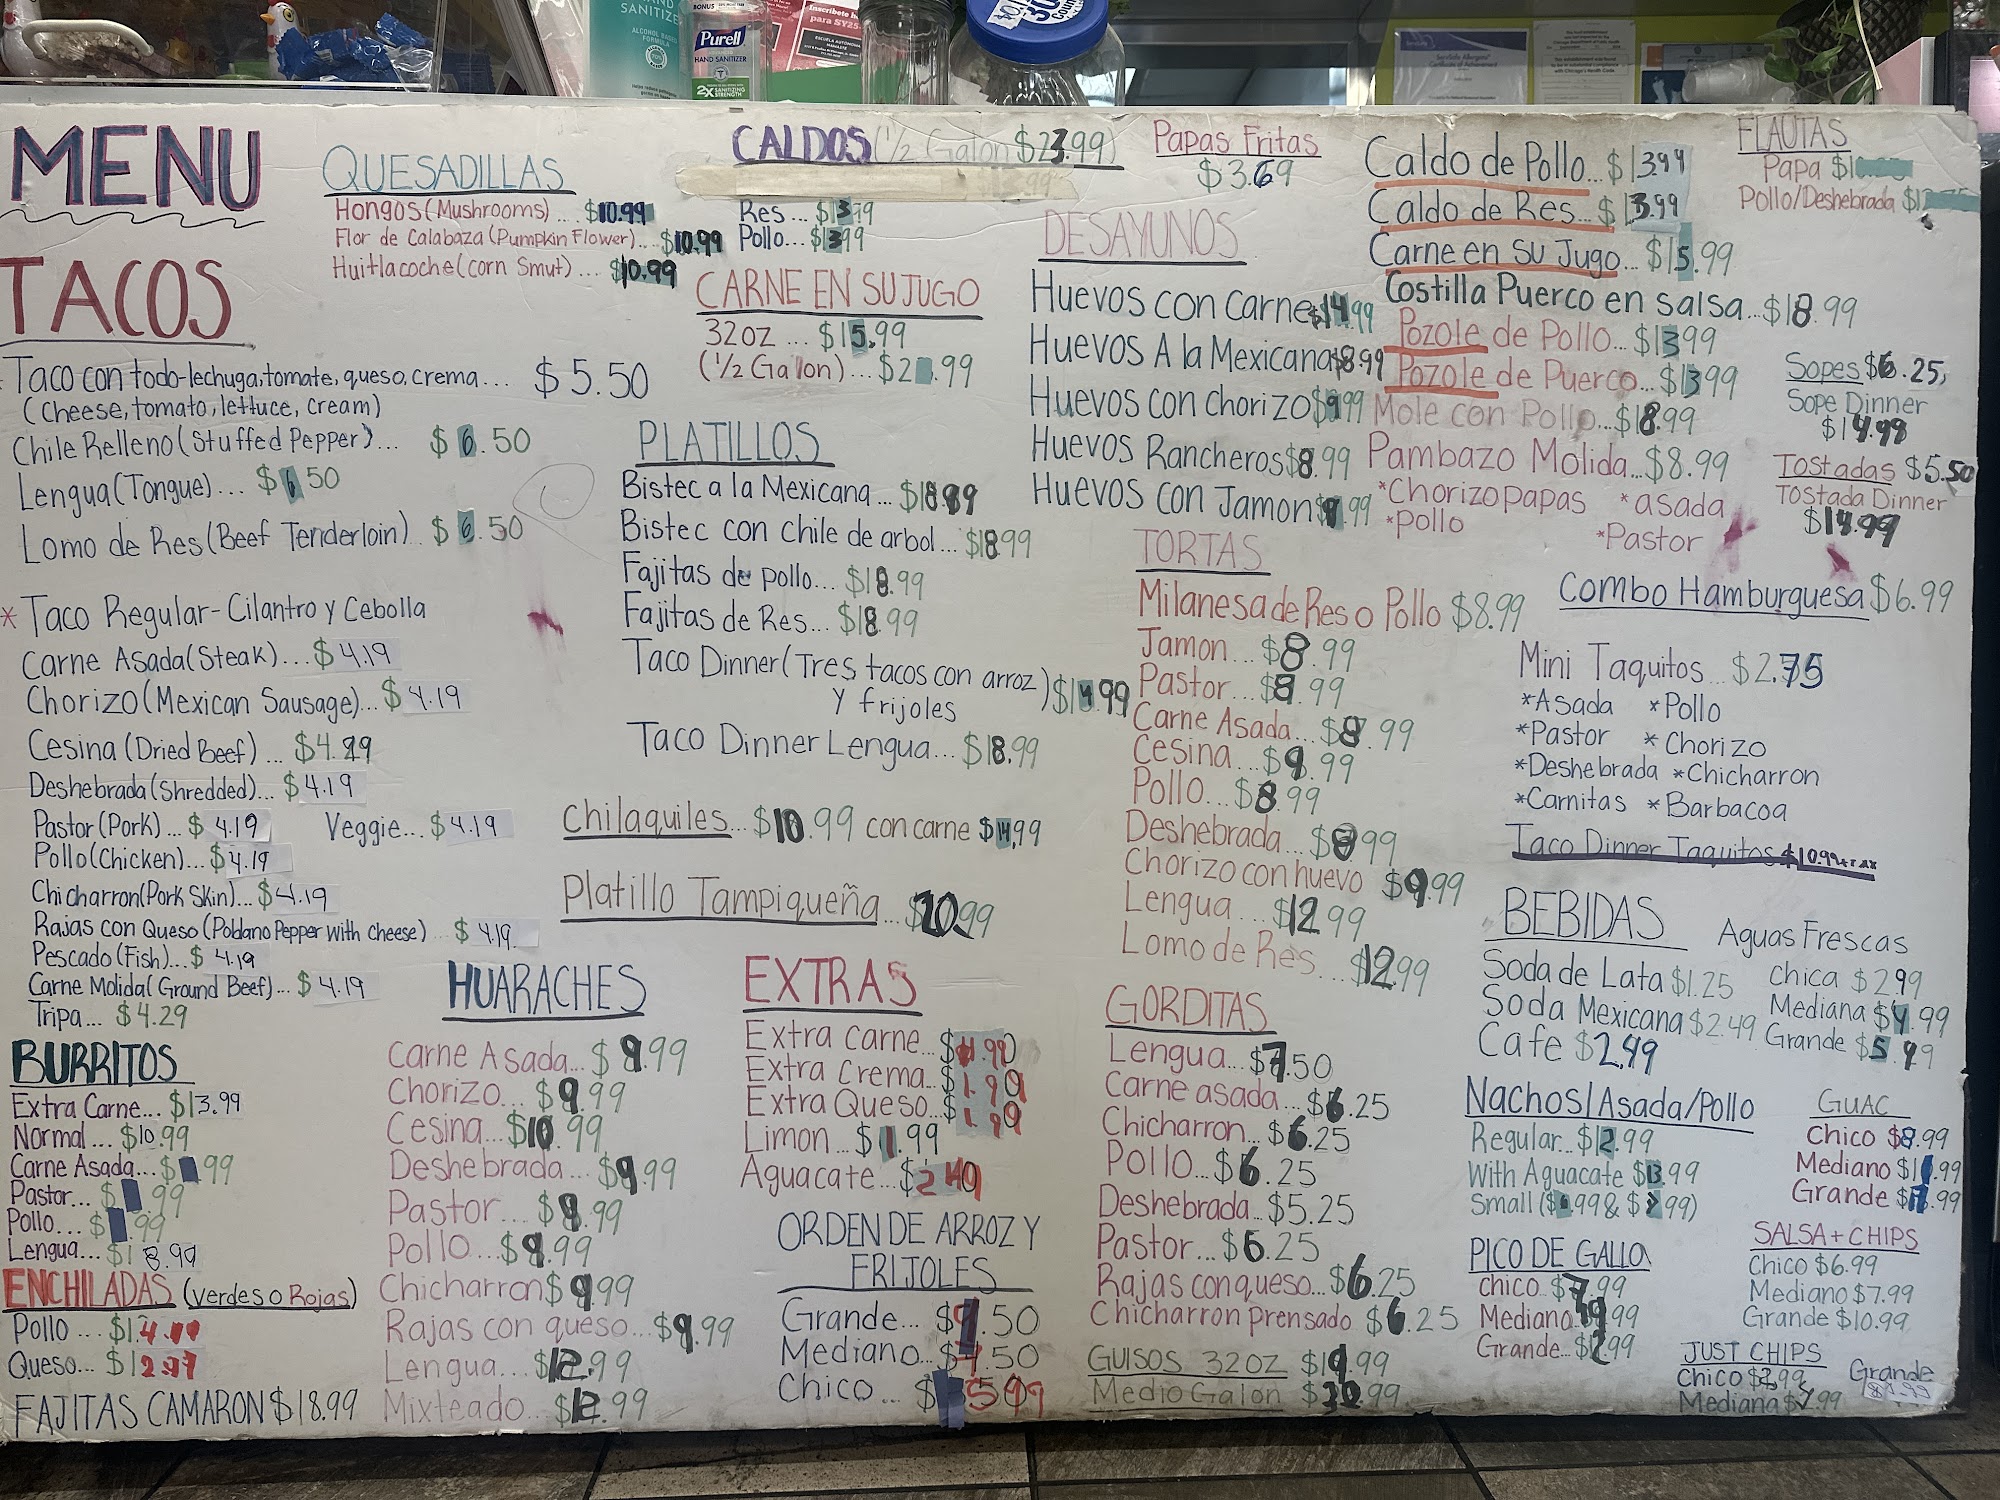 SANITIZE
ALCOHOL BASED
FORMULA
BONUS
Purell
HAND SANITIZER
2X SANITIZING
STRENGTH
Inscríbete
para SY25
MENU
TACOS
Taco con todo-lechuga, tomate, queso, crema... $5.50
(cheese, tomato, lettuce, cream)
Chile Relleno (Stuffed Pepper)... $6.50
Lengua (Tongue)... $6.50
Lomo de Res (Beef Tenderloin) $6.50
* Taco Regular-Cilantro y Cebolla
Carne Asada (Steak)... $4.19
Chorizo (Mexican Sausage)... $4.19
Cesina (Dried Beef)... $4.29
Deshebrada (Shredded)... $4.19
Pastor (Pork)... $4.19
Veggie... $4.19
Pollo (Chicken)... $4.19
Chicharron (Pork Skin)... $4.19
Rajas con Queso (Poblano Pepper with cheese) $4.19
Pescado (Fish)... $4.19
Carne Molida (Ground Beef)... $4.19
Tripa... $4.29
BURRITOS
Extra Carne... $13.99
Normal... $10.99
Carne Asada... $ .99
Pastor... $ .99
Pollo... $ .99
Lengua... $18.99
ENCHILADAS (verdes o Rojas)
Pollo... $14.99
Queso... $12.97
FAJITAS CAMARON $18.99
QUESADILLAS
Hongos (Mushrooms)... $10.99
Flor de Calabaza (Pumpkin Flower)... $10.99
Huitlacoche (corn Smut)... $10.99
CALDOS (1/2 Galon $23.99)
Res... $13.99
Pollo... $13.99
CARNE EN SU JUGO
32oz... $15.99
(1/2 Galon)... $2 .99
PLATILLOS
Bistec a la Mexicana... $18.99
Bistec con chile de arbol... $18.99
Fajitas de pollo... $18.99
Fajitas de Res... $18.99
Taco Dinner (Tres tacos con arroz
y frijoles) $14.99
Taco Dinner Lengua... $18.99
Chilaquiles... $10.99 con carne $14.99
Platillo Tampiqueña... $20.99
HUARACHES
Carne Asada... $9.99
Chorizo... $9.99
Cesina... $10.99
Deshebrada... $9.99
Pastor... $9.99
Pollo... $9.99
Chicharron $9.99
Rajas con queso... $9.99
Lengua... $12.99
Mixteado... $12.99
EXTRAS
Extra Carne... $4.90
Extra Crema... $1.99
Extra Queso... $1.99
Limon... $1.99
Aguacate... $2.40
ORDEN DE ARROZ Y
FRIJOLES
Grande... $9.50
Mediano... $ .50
Chico... $ 5.99
Papas Fritas
$3.69
DESAYUNOS
Huevos con Carne $14.99
Huevos A la Mexicana $8.99
Huevos con chorizo $9.99
Huevos Rancheros $8.99
Huevos con Jamon $9.99
TORTAS
Milanesa de Res o Pollo $8.99
Jamon... $8.99
Pastor... $8.99
Carne Asada... $8.99
Cesina... $9.99
Pollo... $8.99
Deshebrada... $8.99
Chorizo con huevo $9.99
Lengua... $12.99
Lomo de Res... $12.99
GORDITAS
Lengua... $7.50
Carne asada... $6.25
Chicharron... $6.25
Pollo... $6.25
Deshebrada... $5.25
Pastor... $6.25
Rajas con queso... $6.25
Chicharron prensado $6.25
GUISOS 32oz $19.99
Medio Galon $39.99
Caldo de Pollo... $13.99
Caldo de Res... $13.99
Carne en su Jugo... $15.99
Costilla Puerco en salsa... $18.99
Pozole de Pollo... $13.99
Pozole de Puerco... $13.99
Mole con Pollo... $18.99
Pambazo Molida... $8.99
*Chorizo papas *asada
*pollo *Pastor
FLAUTAS
Papa
Pollo/Deshebrada
Sopes $6.25
Sope Dinner
$14.99
Tostadas $5.50
Tostada Dinner
$14.99
Combo Hamburguesa $6.99
Mini Taquitos... $2.75
*Asada *Pollo
*Pastor *Chorizo
*Deshebrada *Chicharron
*Carnitas *Barbacoa
Taco Dinner Taquitos $10.99+tax
BEBIDAS
Soda de Lata $1.25
Soda Mexicana $2.49
Cafe $2.49
Aguas Frescas
Chica $2.99
Mediana $4.99
Grande $5.99
Nachos/Asada/Pollo
Regular... $12.99
With Aguacate $13.99
Small
GUAC
Chico $8.99
Mediano $1 .99
Grande $1 .99
PICO DE GALLO
chico... $7.99
Mediano... .99
Grande... $12.99
SALSA+CHIPS
Chico $6.99
Mediano $7.99
Grande $10.99
JUST CHIPS
Chico $3.99
Mediana $7.99
Grande